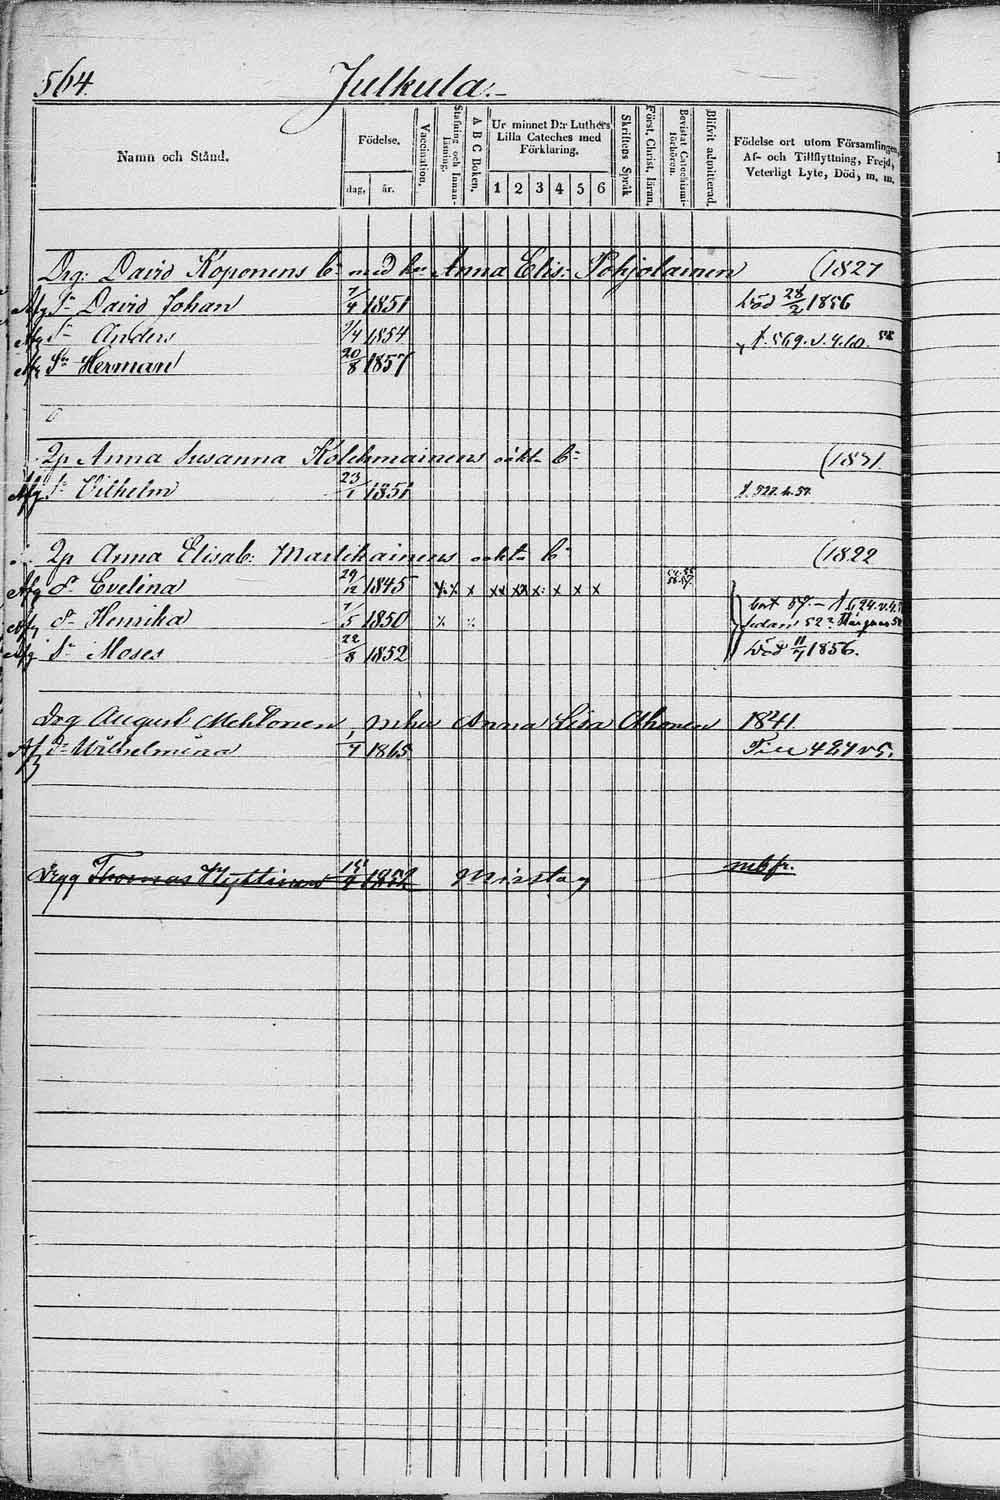 564.
Julkula.
Namn och Stånd.
Födelse.
dag,
år.
Vaccination.
Stafning och Innan-
läsning.
A B C Boken.
Ur minnet D:r Luthers
Lilla Cateches med
Förklaring.
1 2 3 4 5 6
Skriftens Språk
Först. Christ. läran.
Bevistat Catechismi-
förhören.
Blifvit admitterad.
Födelse ort utom Församlingen,
Af- och Tillflyttning, Frejd,
Veterligt Lyte, Död, m. m.
Drg: David Koponens b: med hu Anna Elis: Pohjolainen (1827
Afg Sn David Johan 7/4 1851 död 28/2 1856
Afg Sn Anders 9/4 1854 f. 569. v. 4. 60.
Afg Sn Herman 20/8 1857
Qp Anna Susanna Kolehmainens oäkta b: (1831
Afg Sn Vilhelm 23/1 1851
Qp Anna Elisab: Martikainens oäkta b: (1822
Afg d. Evelina 29/12 1845 x x x xx xx x x x x
Afg d. Henrika 7/5 1850
Afg Sn Moses 22/8 1852 död 11/7 1856.
Drg August Mehtonen, m hu Anna Lisa Ahonen 1841.
Afg Dr Wilhelmina 1/7 1865.
Drgg Thomas Hyttinen Misstag